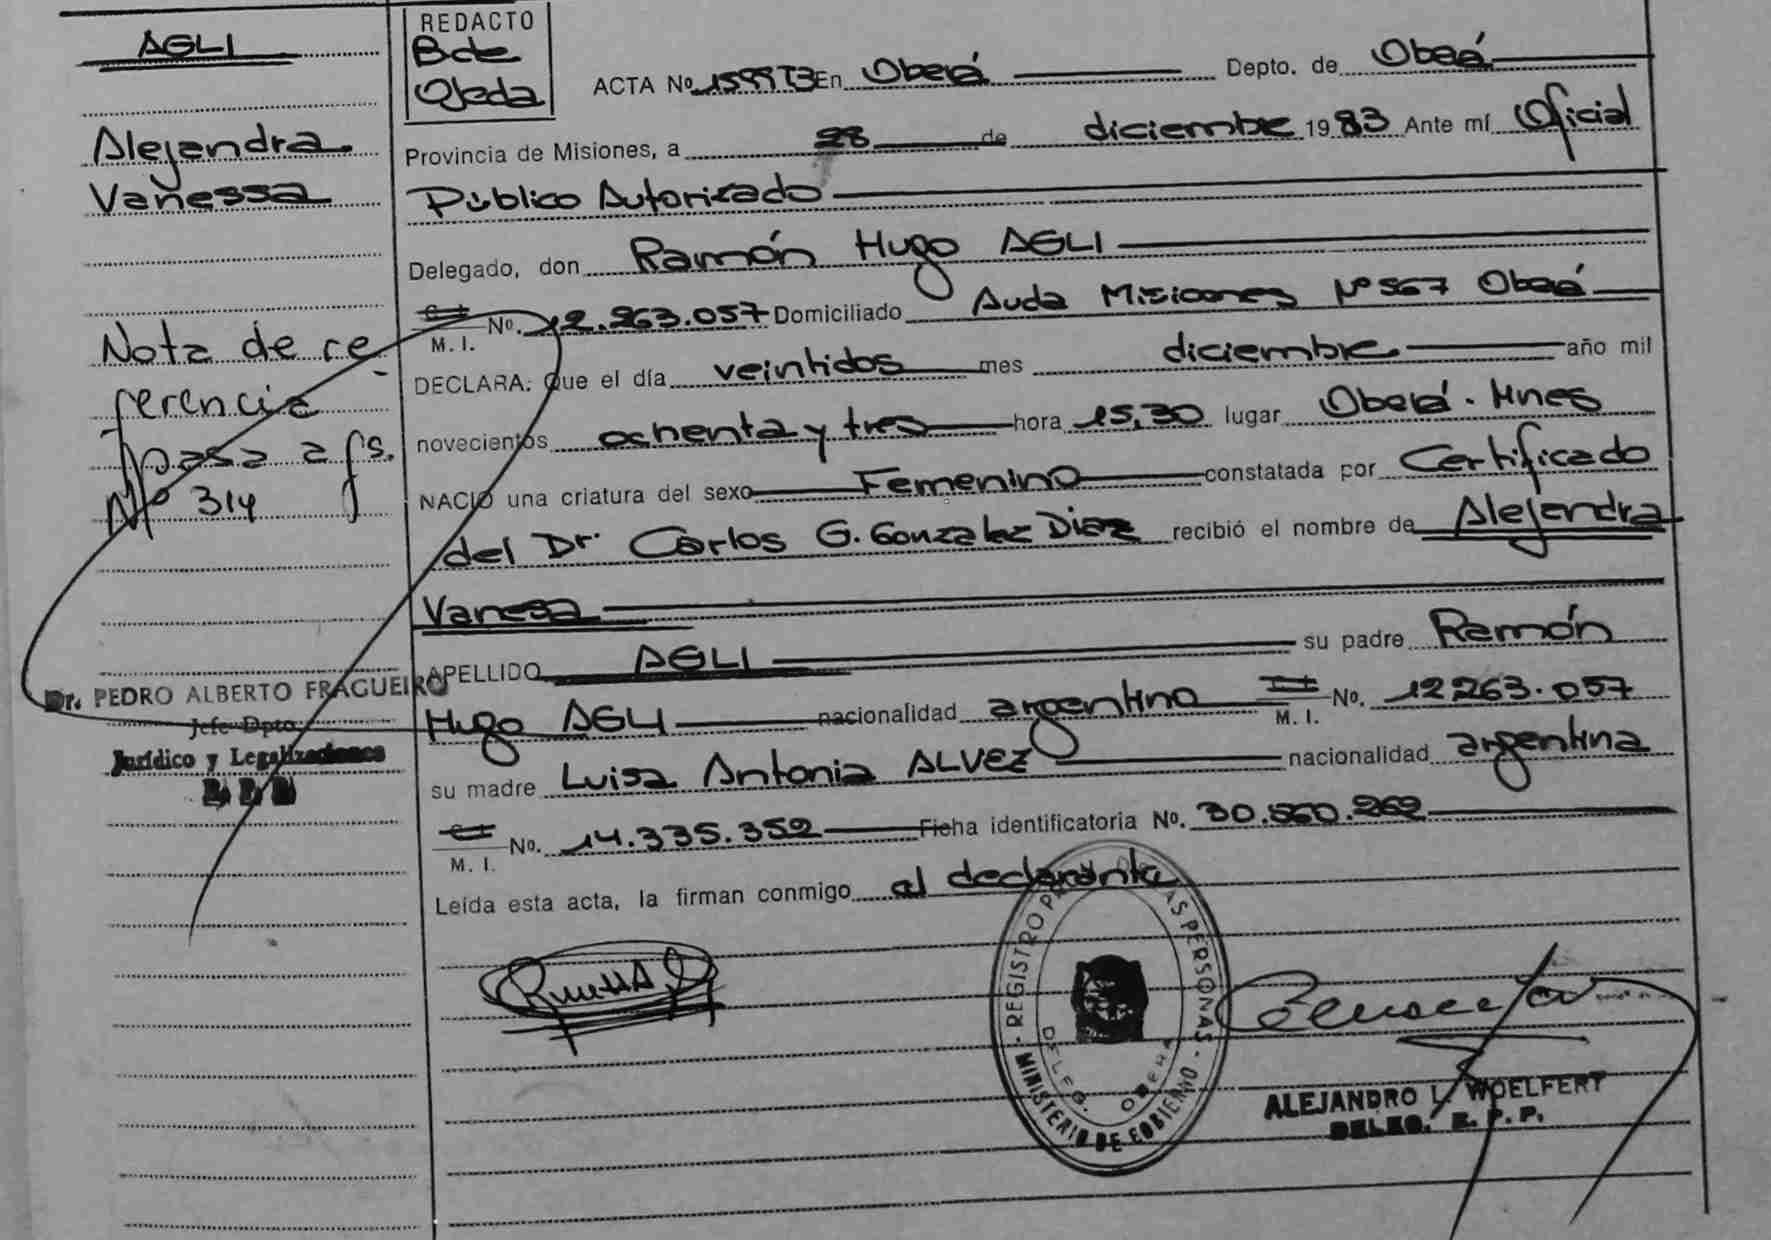 AGLI
Alejandra
Vanessa
Nota de re
ferencia
pasa a fs.
Nº 314
Dr. PEDRO ALBERTO FRAGUEIRO
Jefe Dpto.
Jurídico y Legalizaciones
REDACTO
Bde
Ojeda
ACTA No 1599T3 En Oberá Depto. de Oberá
Provincia de Misiones, a 28 de diciembre 1983 Ante mí Oficial
Público Autorizado
Delegado, don Ramón Hugo AGLI
M. I. No. 12.263.057 Domiciliado Avda Misiones Nº 567 Oberá
DECLARA: Que el día veintidos mes diciembre año mil
novecientos ochenta y tres hora 15,30 lugar Oberá - Mnes
NACIO una criatura del sexo Femenino constatada por Certificado
del Dr. Carlos G. Gonzalez Diaz recibió el nombre de Alejandra
Vanesa
APELLIDO AGLI su padre Ramón
Hugo AGLI nacionalidad argentino M. I. No. 12263.057
su madre Luisa Antonia ALVEZ nacionalidad argentina
M. I. No. 14.335.352 Ficha identificatoria No. 30.560.262
Leída esta acta, la firman conmigo el declarante
REGISTRO PROV. DE LAS PERSONAS
DELEG. OBERA
MINISTERIO DE GOBIERNO
ALEJANDRO L. WOELFERT
DELEG. R. P. P.